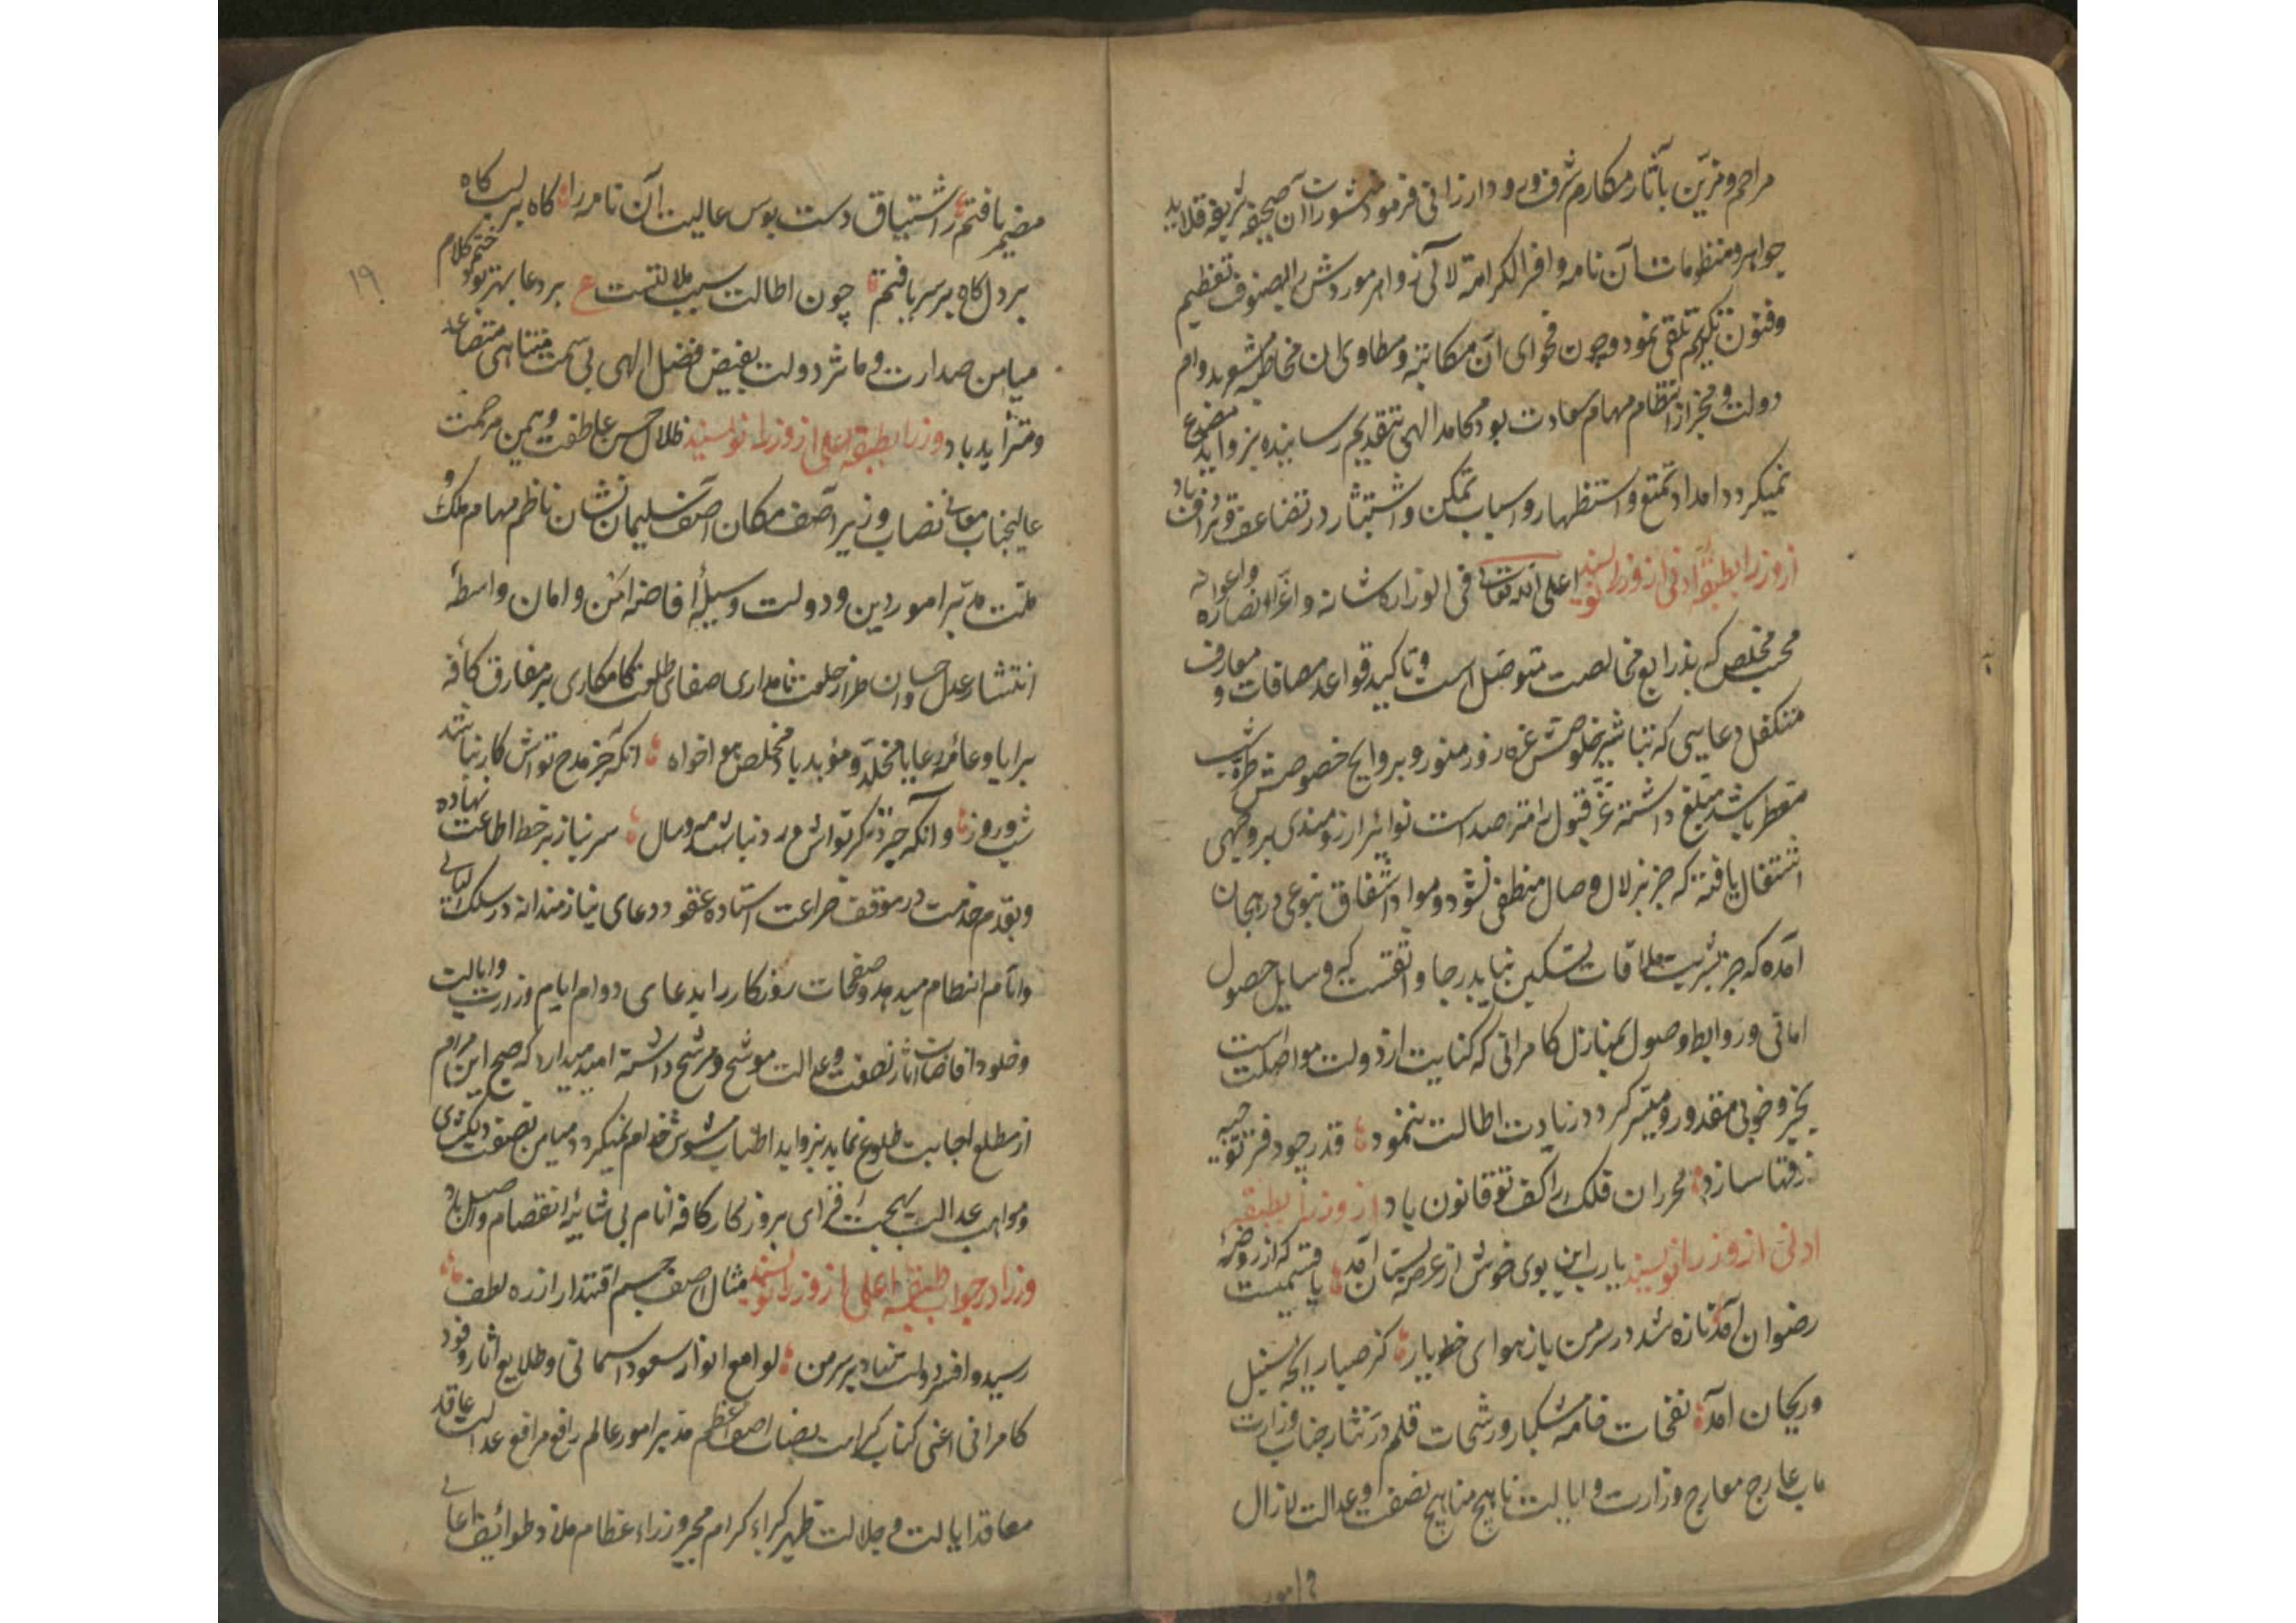 مراحم و مزین بآثار مکارم شرف ورود ارزانی فرمود منشورات آن صحیفه شریفه قلاید
جواهر و منظومات آن نامه وافر الکرامة لآلی زواهر موردش را بصنوف تعظیم
وفنون تکریم تلقی نمود و چون فحوای آن مکاتبه و مطاوی ان مخاطبه مشعر بدوام
دولت و مخبر از انتظام مهام سعادت بود محامد الهی بتقدیم رسانیده بزواید مصدع
نمیکردد امداد تمتع و استظهار و اسباب تمکن و استبشار در تضاعف و ترادف باد
از وزرا بطبقهٔ ادنی از وزرا نویسند اعلی الله تعالی فی الوزراء شانه و اعز انصاره واعوانه
محب مخلص که بذرایع مخالصت متوصل است و تاکید قواعد مصافات و معارف
متکفل دعایی که تباشیر خلوصش غره روز منور و بروایح خصوصش طره شب
معطر باشد مبلغ داشته عز قبول را مترصد است نوایر ارزومندی بروجهی
اشتعال یافته که جز بزلال وصال منطفی نشود و مواد اشفاق بنوعی در هیجان
آمده که جز بشربت ملاقات تسکین نیابد رجا واثقست که وسایل حصول
امانی و روابط وصول بمنازل کامرانی که کنایت از دولت مواصلت است
بخیر و خوبی مقدور و میسر کردد زیادت اطالت ننمود قدر چو دفتر توجیه
زرقتا سازد محرران فلک را کف تو قانون باد از وزرا بطبقه
ادنی از وزرا نویسند یارب این بوی خوش از عرصه بستان آمد یا نسیمیست که از روضهٔ
رضوان آمد تازه شد در سر من باز هوای خط یار کز صبا رایحه سنبل
و ریحان آمد نفحات خامه مشکبار و رشحات قلم درنثار جناب وزارت
ماب عارج معارج وزارت و ایالت ناهج مناهج نصفت و عدالت لازال
امور
۱۹
مضمر یافتم ز اشتیاق دست بوس عالیت آن نامه را کاه بر لب کاه
بر دل کاه بر سر یافتم چون اطالت سبب ملالتست ع بر دعا بهتر بود ختم کلام
میامن صدارت و ماثر دولت بفیض فضل الهی بی سمت متناهی متضاعد
و متزاید باد وزرا بطبقه اعلی از وزرا نویسند ظلال حسن عاطفت و یمن مرحمت
عالیجناب معالی نصاب وزیر آصف مکان آصف سلیمان نشان ناظم مهام ملک و
ملت مدبر امور دین و دولت وسیلهٔ افاضه امن و امان واسطهٔ
انتشار عدل و احسان طراز خلعت نامداری صفای طلعت کامکاری بر مفارق کافه
برایا و عامهٔ رعایا مخلد و مؤبد باد مخلص هواخواه انکه جز مدح تواش کار نباشد
شب و روز و انکه جز ذکر تواش ورد نباشد مه و سال سر نیاز بر خط اطاعت نهاده
و بقدم خدمت در موقف ضراعت استاده عقود دعای نیازمندانه در سلک لیالی
و ایام انتظام میدهد و صفحات روزکار را بدعای دوام ایام وزارت و ایالت
و خلود افاضات آثار نصفت و عدالت موشح و مرشح داشته امید میدارد که صبح این مرام
از مطلع اجابت طلوع نماید بزواید اطناب مشوش خدام نمیکردد میامن نصفت
و مواهب عدالت بهجت افزای بروزکار کافه انام بی شایبه انقصام واصل باد
وزرا در جواب طبقه اعلی از وزرا نویسند مثال اصف جم اقتدار از ره لطف
رسید و افسر دولت نهاد بر سر من لوامع انوار سعود اسمانی و طلایع آثار وفود
کامرانی اعنی کتاب کرامت نصاب اصف اعظم مدبر امور عالم رافع مرافع عدالت عاقد
معاقد ایالت و جلالت ظهیر کبراء کرام مجیر وزراء عظام ملاذ طوایف اعالی